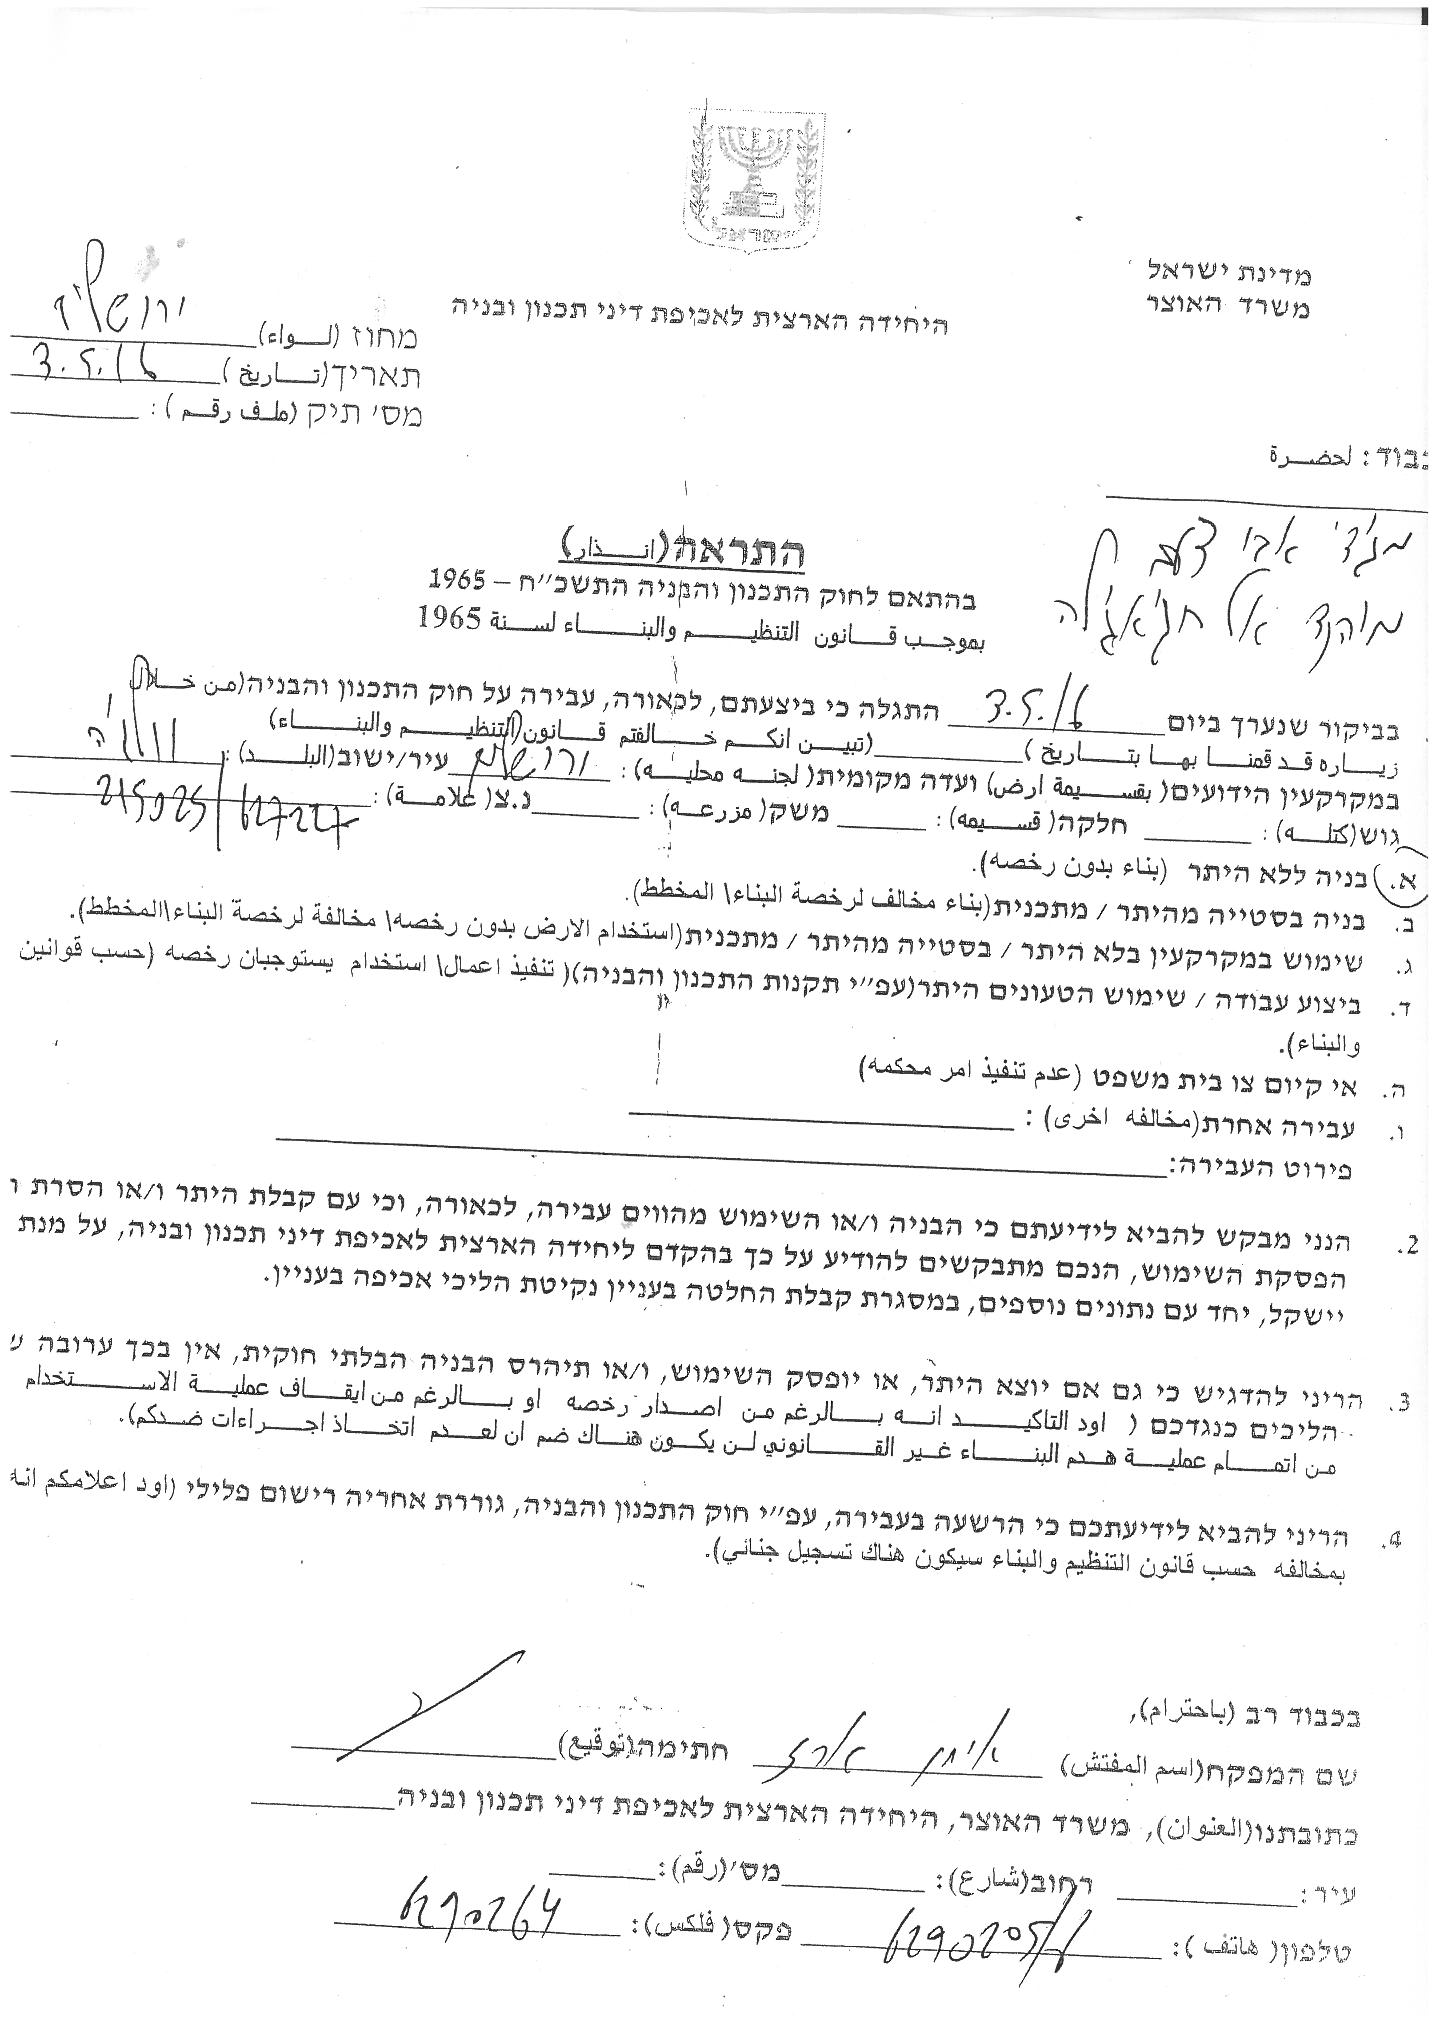 מדינת ישראל
משרד האוצר
היחידה הארצית לאכיפת דיני תכנון ובניה
מחוז (لـــواء) ירושלים
תאריך (تـــاريخ) 3.5.16
מס׳ תיק (ملـف رقـم):
כבוד: لحضـرة
מג'די אבו
מוהנד אל חג'אג'לה
התראה (انـــذار)
בהתאם לחוק התכנון והבניה התשכ״ח – 1965
بموجـب قـانون التنظيـــم والبنـــاء لسـنة 1965
בביקור שנערך ביום 3.5.16 התגלה כי ביצעתם, לכאורה, עבירה על חוק התכנון והבניה (من خـــلال
زيـاره قـد قمنـا بهـا بتـاريخ ) (تبيـن انكـم خـالفتم قـانون التنظيـم والبنـــاء)
במקרקעין הידועים (بقسـيمة ارض) ועדה מקומית (لجنـه محليـه): ירושלים עיר/ישוב (البلـــد): וולג'ה
גוש (كتلـه): חלקה (قسـيمه): משק (مزرعـه): נ.צ (علامـة): 215025/627227
א. בניה ללא היתר (بناء بدون رخصه).
ב. בניה בסטייה מהיתר / מתכנית (بناء مخالف لرخصة البناء\ المخطط).
ג. שימוש במקרקעין בלא היתר / בסטייה מהיתר / מתכנית (استخدام الارض بدون رخصه\ مخالفة لرخصة البناء\المخطط).
ד. ביצוע עבודה / שימוש הטעונים היתר (עפ״י תקנות התכנון והבניה) (تنفيذ اعمال\ استخدام يستوجبان رخصه (حسب قوانين
والبناء).
ה. אי קיום צו בית משפט (عدم تنفيذ امر محكمه)
ו. עבירה אחרת (مخالفه اخرى):
פירוט העבירה:
2. הנני מבקש להביא לידיעתם כי הבניה ו/או השימוש מהווים עבירה, לכאורה, וכי עם קבלת היתר ו/או הסרת ו
הפסקת השימוש, הנכם מתבקשים להודיע על כך בהקדם ליחידה הארצית לאכיפת דיני תכנון ובניה, על מנת
יישקל, יחד עם נתונים נוספים, במסגרת קבלת החלטה בעניין נקיטת הליכי אכיפה בעניין.
3. הריני להדגיש כי גם אם יוצא היתר, או יופסק השימוש, ו/או תיהרס הבניה הבלתי חוקית, אין בכך ערובה ש
הליכים כנגדכם ( اود التاكيـــد انـه بـالرغم مـن اصـدار رخصه او بـالرغم من ايقـاف عمليـة الاســتخدام
من اتمـــام عمليـة هـدم البنـــاء غـير القـــانوني لـن يكـون هنـاك ضم ان لعـدم اتخـاذ اجـراءات ضدكم).
4. הריני להביא לידיעתכם כי הרשעה בעבירה, עפ״י חוק התכנון והבניה, גוררת אחריה רישום פלילי (اود اعلامكم انه
بمخالفه حسب قانون التنظيم والبناء سيكون هناك تسجيل جنائي).
בכבוד רב (باحترام),
שם המפקח (اسم المفتش) איתן ארז חתימה (توقيع)
כתובתנו (العنوان), משרד האוצר, היחידה הארצית לאכיפת דיני תכנון ובניה
עיר: רחוב (شارع): מס׳ (رقم):
טלפון (هاتف ): 6290205/ פקס (فلكس): 6290264